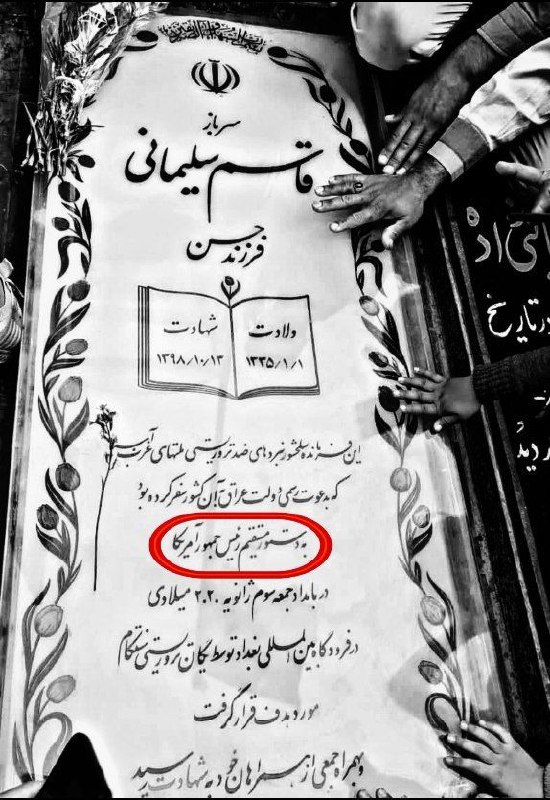 سرباز
قاسم سلیمانی
فرزند حسن
ولادت
۱۳۳۵/۱/۱
شهادت
۱۳۹۸/۱۰/۱۳
این فرمانده سلحشور نبردهای ضد تروریستی ملتهای غرب آسیا
که به دعوت رسمی دولت عراق به آن کشور سفر کرده بود
به دستور مستقیم رئیس جمهور آمریکا
در بامداد جمعه سوم ژانویه ۲۰۲۰ میلادی
در فرودگاه بین المللی بغداد توسط یگان تروریستی
مورد هدف قرار گرفت
و به همراه جمعی از همراهان خود به شهادت رسید
تاریخ